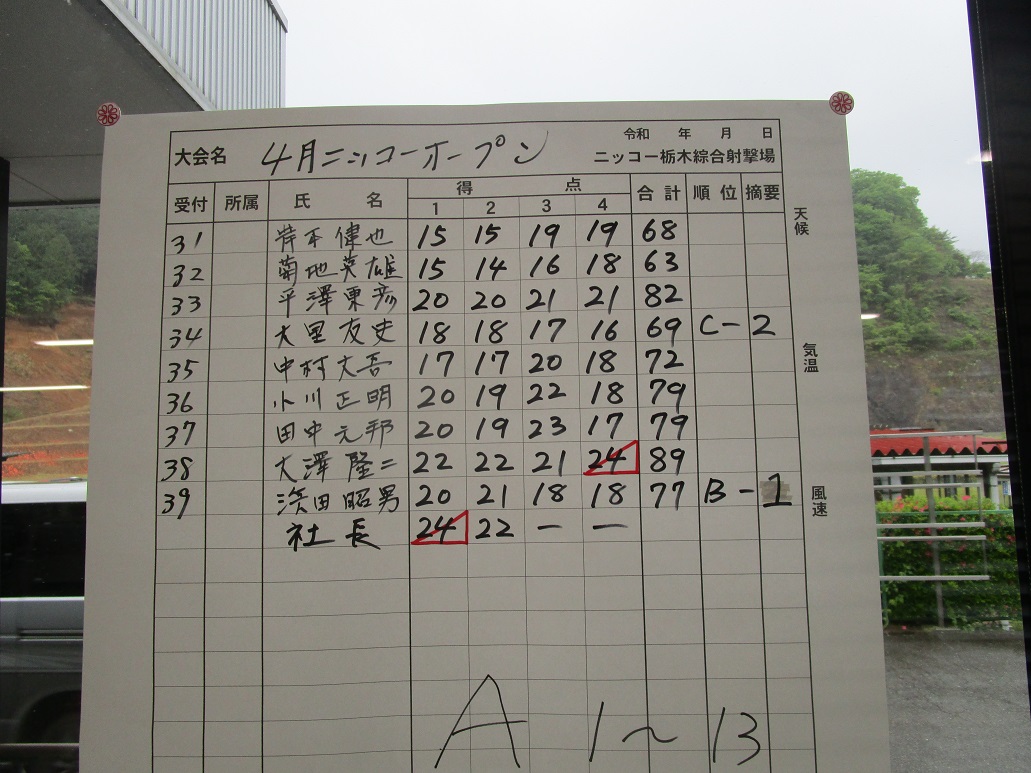 令和 年 月 日
大会名 4月ニッコーオープン ニッコー栃木綜合射撃場
受付 所属 氏名 得点 合計 順位 摘要
1 2 3 4
天候
31 偉也 15 15 19 19 68
32 菊地英雄 15 14 16 18 63
33 平澤東彦 20 20 21 21 82
34 大里友史 18 18 17 16 69 C-2
気温
35 中村大吾 17 17 20 18 72
36 小川正明 20 19 22 18 79
37 田中元邦 20 19 23 17 79
38 大澤隆二 22 22 21 24 89
39 浜田昭男 20 21 18 18 77 B-1
風速
社長 24 22 - -
A 1~13